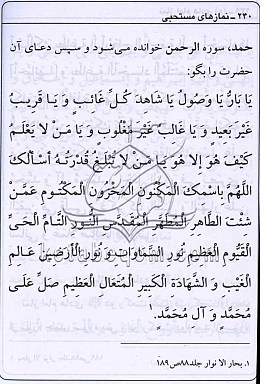 ۲۳۰ ـ نمازهای مستحبی
حمد، سوره الرحمن خوانده می‌شود و سپس دعای آن
حضرت را بگو:
يَا بَارُّ يَا وَصُولُ يَا شَاهِدَ كُلِّ غَائِبٍ وَ يَا قَرِيبُ
غَيْرَ بَعِيدٍ وَ يَا غَالِبُ غَيْرَ مَغْلُوبٍ وَ يَا مَنْ لَا يَعْلَمُ
كَيْفَ هُوَ إِلَّا هُوَ يَا مَنْ لَا تُبْلَغُ قُدْرَتُهُ أَسْأَلُكَ
اللَّهُمَّ بِاسْمِكَ الْمَكْنُونِ الْمَخْزُونِ الْمَكْتُومِ عَمَّنْ
شِئْتَ الطَّاهِرِ الْمُطَهَّرِ الْمُقَدَّسِ النُّورِ التَّامِّ الْحَيِّ
الْقَيُّومِ الْعَظِيمِ نُورِ السَّمَاوَاتِ وَ نُورِ الْأَرَضِينَ عَالِمِ
الْغَيْبِ وَ الشَّهَادَةِ الْكَبِيرِ الْمُتَعَالِ الْعَظِيمِ صَلِّ عَلَى
مُحَمَّدٍ وَ آلِ مُحَمَّدٍ. ۱
۱. بحار الانوار جلد۸۸ص۱۸۹